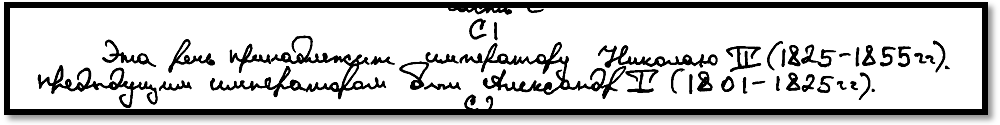 С1
Эта речь принадлежит императору Николаю II (1825-1855гг).
предыдущим императором был Александр I (1801-1825гг).
С2